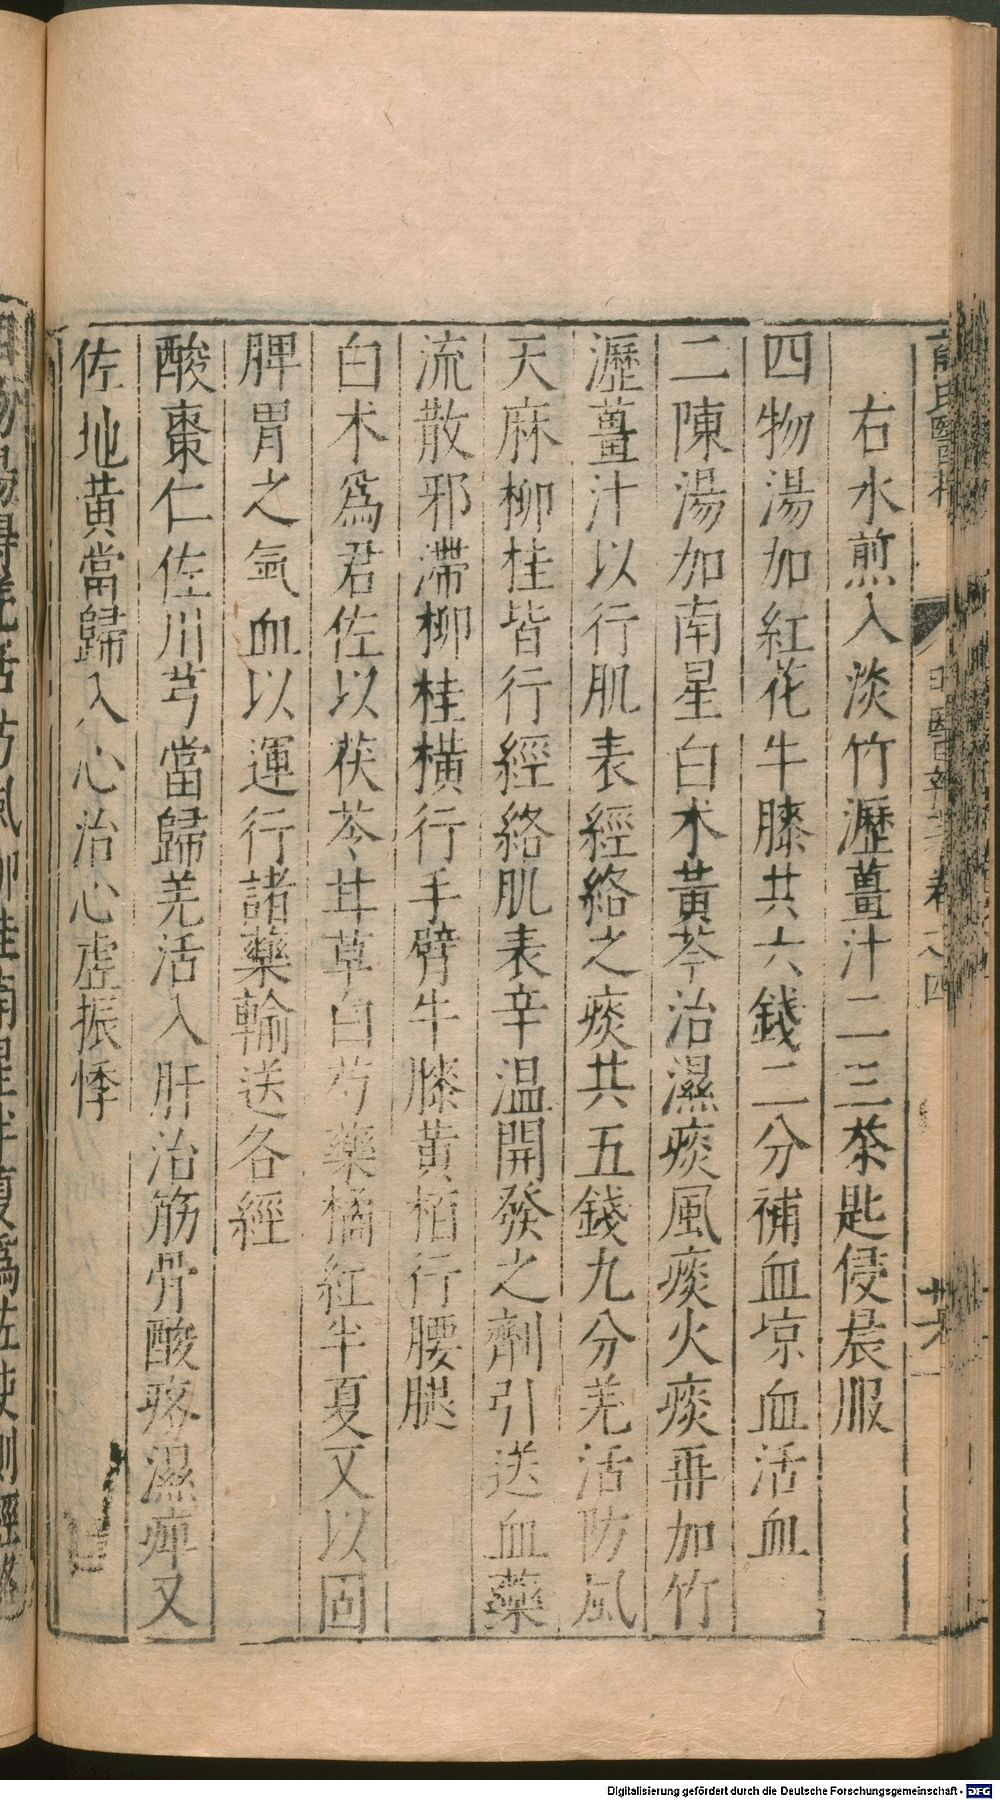 右水煎入淡竹瀝薑汁二三茶匙侵晨服
四物湯加紅花牛膝共六錢二分補血凉血活血
二陳湯加南星白术黃芩治濕痰風痰火痰再加竹
瀝薑汁以行肌表經絡之痰共五錢九分羌活防風
天麻柳桂皆行經絡肌表辛温開發之劑引送血藥
流散邪滯柳桂橫行手臂牛膝黃栢行腰腿
白术爲君佐以茯苓甘草白芍藥橘紅半夏又以固
脾胃之氣血以運行諸藥輸送各經
酸棗仁佐川芎當歸羌活入肝治筋骨酸疼濕痺又
佐地黃當歸入心治心虛振悸
Digitalisierung gefördert durch die Deutsche Forschungsgemeinschaft - DFG